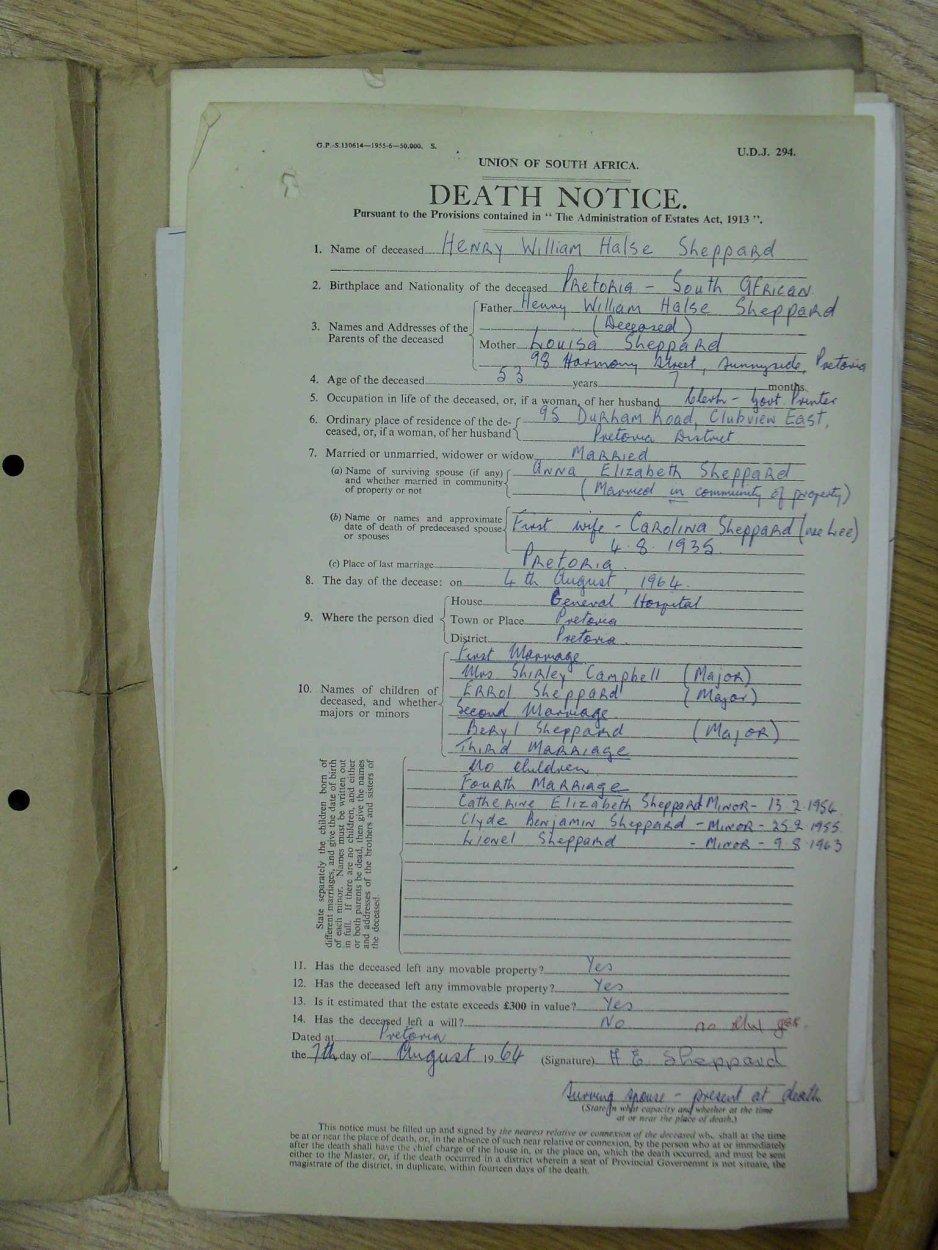 G.P.-S.130614—1955-6—50,000. S.
U.D.J. 294.
UNION OF SOUTH AFRICA.
DEATH NOTICE.
Pursuant to the Provisions contained in “ The Administration of Estates Act, 1913 ”.
1. Name of deceased Henry William Halse Sheppard
2. Birthplace and Nationality of the deceased Pretoria - South African
3. Names and Addresses of the Parents of the deceased
Father Henry William Halse Sheppard
(Deceased)
Mother Louisa Sheppard
98 Harmony Street, Sunnyside, Pretoria
4. Age of the deceased 53 years 7 months.
5. Occupation in life of the deceased, or, if a woman, of her husband Clerk - Govt. Printer
6. Ordinary place of residence of the de-
ceased, or, if a woman, of her husband
95 Durham Road, Clubview East,
Pretoria District
7. Married or unmarried, widower or widow Married
(a) Name of surviving spouse (if any)
and whether married in community
of property or not
Anna Elizabeth Sheppard
(Married in community of property)
(b) Name or names and approximate
date of death of predeceased spouse
or spouses
First wife - Carolina Sheppard (nee Lee)
4.8.1935
(c) Place of last marriage Pretoria
8. The day of the decease: on 4th August, 1964.
9. Where the person died
House General Hospital
Town or Place Pretoria
District Pretoria
10. Names of children of
deceased, and whether
majors or minors
First Marriage
Mrs Shirley Campbell (Major)
Errol Sheppard (Major)
Second Marriage
Beryl Sheppard (Major)
Third Marriage
No children
Fourth Marriage
Catherine Elizabeth Sheppard Minor - 13.2.1954
Clyde Benjamin Sheppard - Minor - 25.2.1955
Lionel Sheppard - Minor - 9.8.1963
State separately the children born of
different marriages, and give the date of birth
of each minor. Names must be written out
in full. If there are no children, and either
or both parents be dead, then give the names
and addresses of the brothers and sisters of
the deceased.
11. Has the deceased left any movable property? Yes
12. Has the deceased left any immovable property? Yes
13. Is it estimated that the estate exceeds £300 in value? Yes
14. Has the deceased left a will? No no
Dated at Pretoria
the 7th day of August 1964 (Signature) A E Sheppard
Surviving spouse - present at death
(State in what capacity and whether at the time
at or near the place of death.)
This notice must be filled up and signed by the nearest relative or connexion of the deceased who shall at the time
be at or near the place of death, or, in the absence of such near relative or connexion, by the person who at or immediately
after the death shall have the chief charge of the house in, or the place on, which the death occurred, and must be sent
either to the Master, or, if the death occurred in a district wherein a seat of Provincial Governemnt is not situate, the
magistrate of the district, in duplicate, within fourteen days of the death.